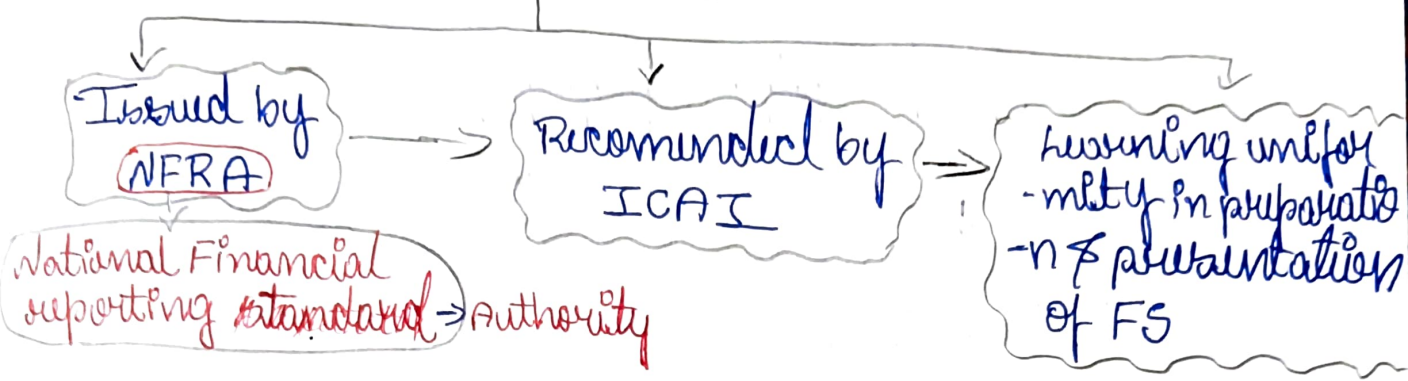 Issued by
NFRA
National Financial
reporting standard → Authority
Recomended by
ICAI
Learning unifor
-mity in preparatio
-n & presentation
of FS